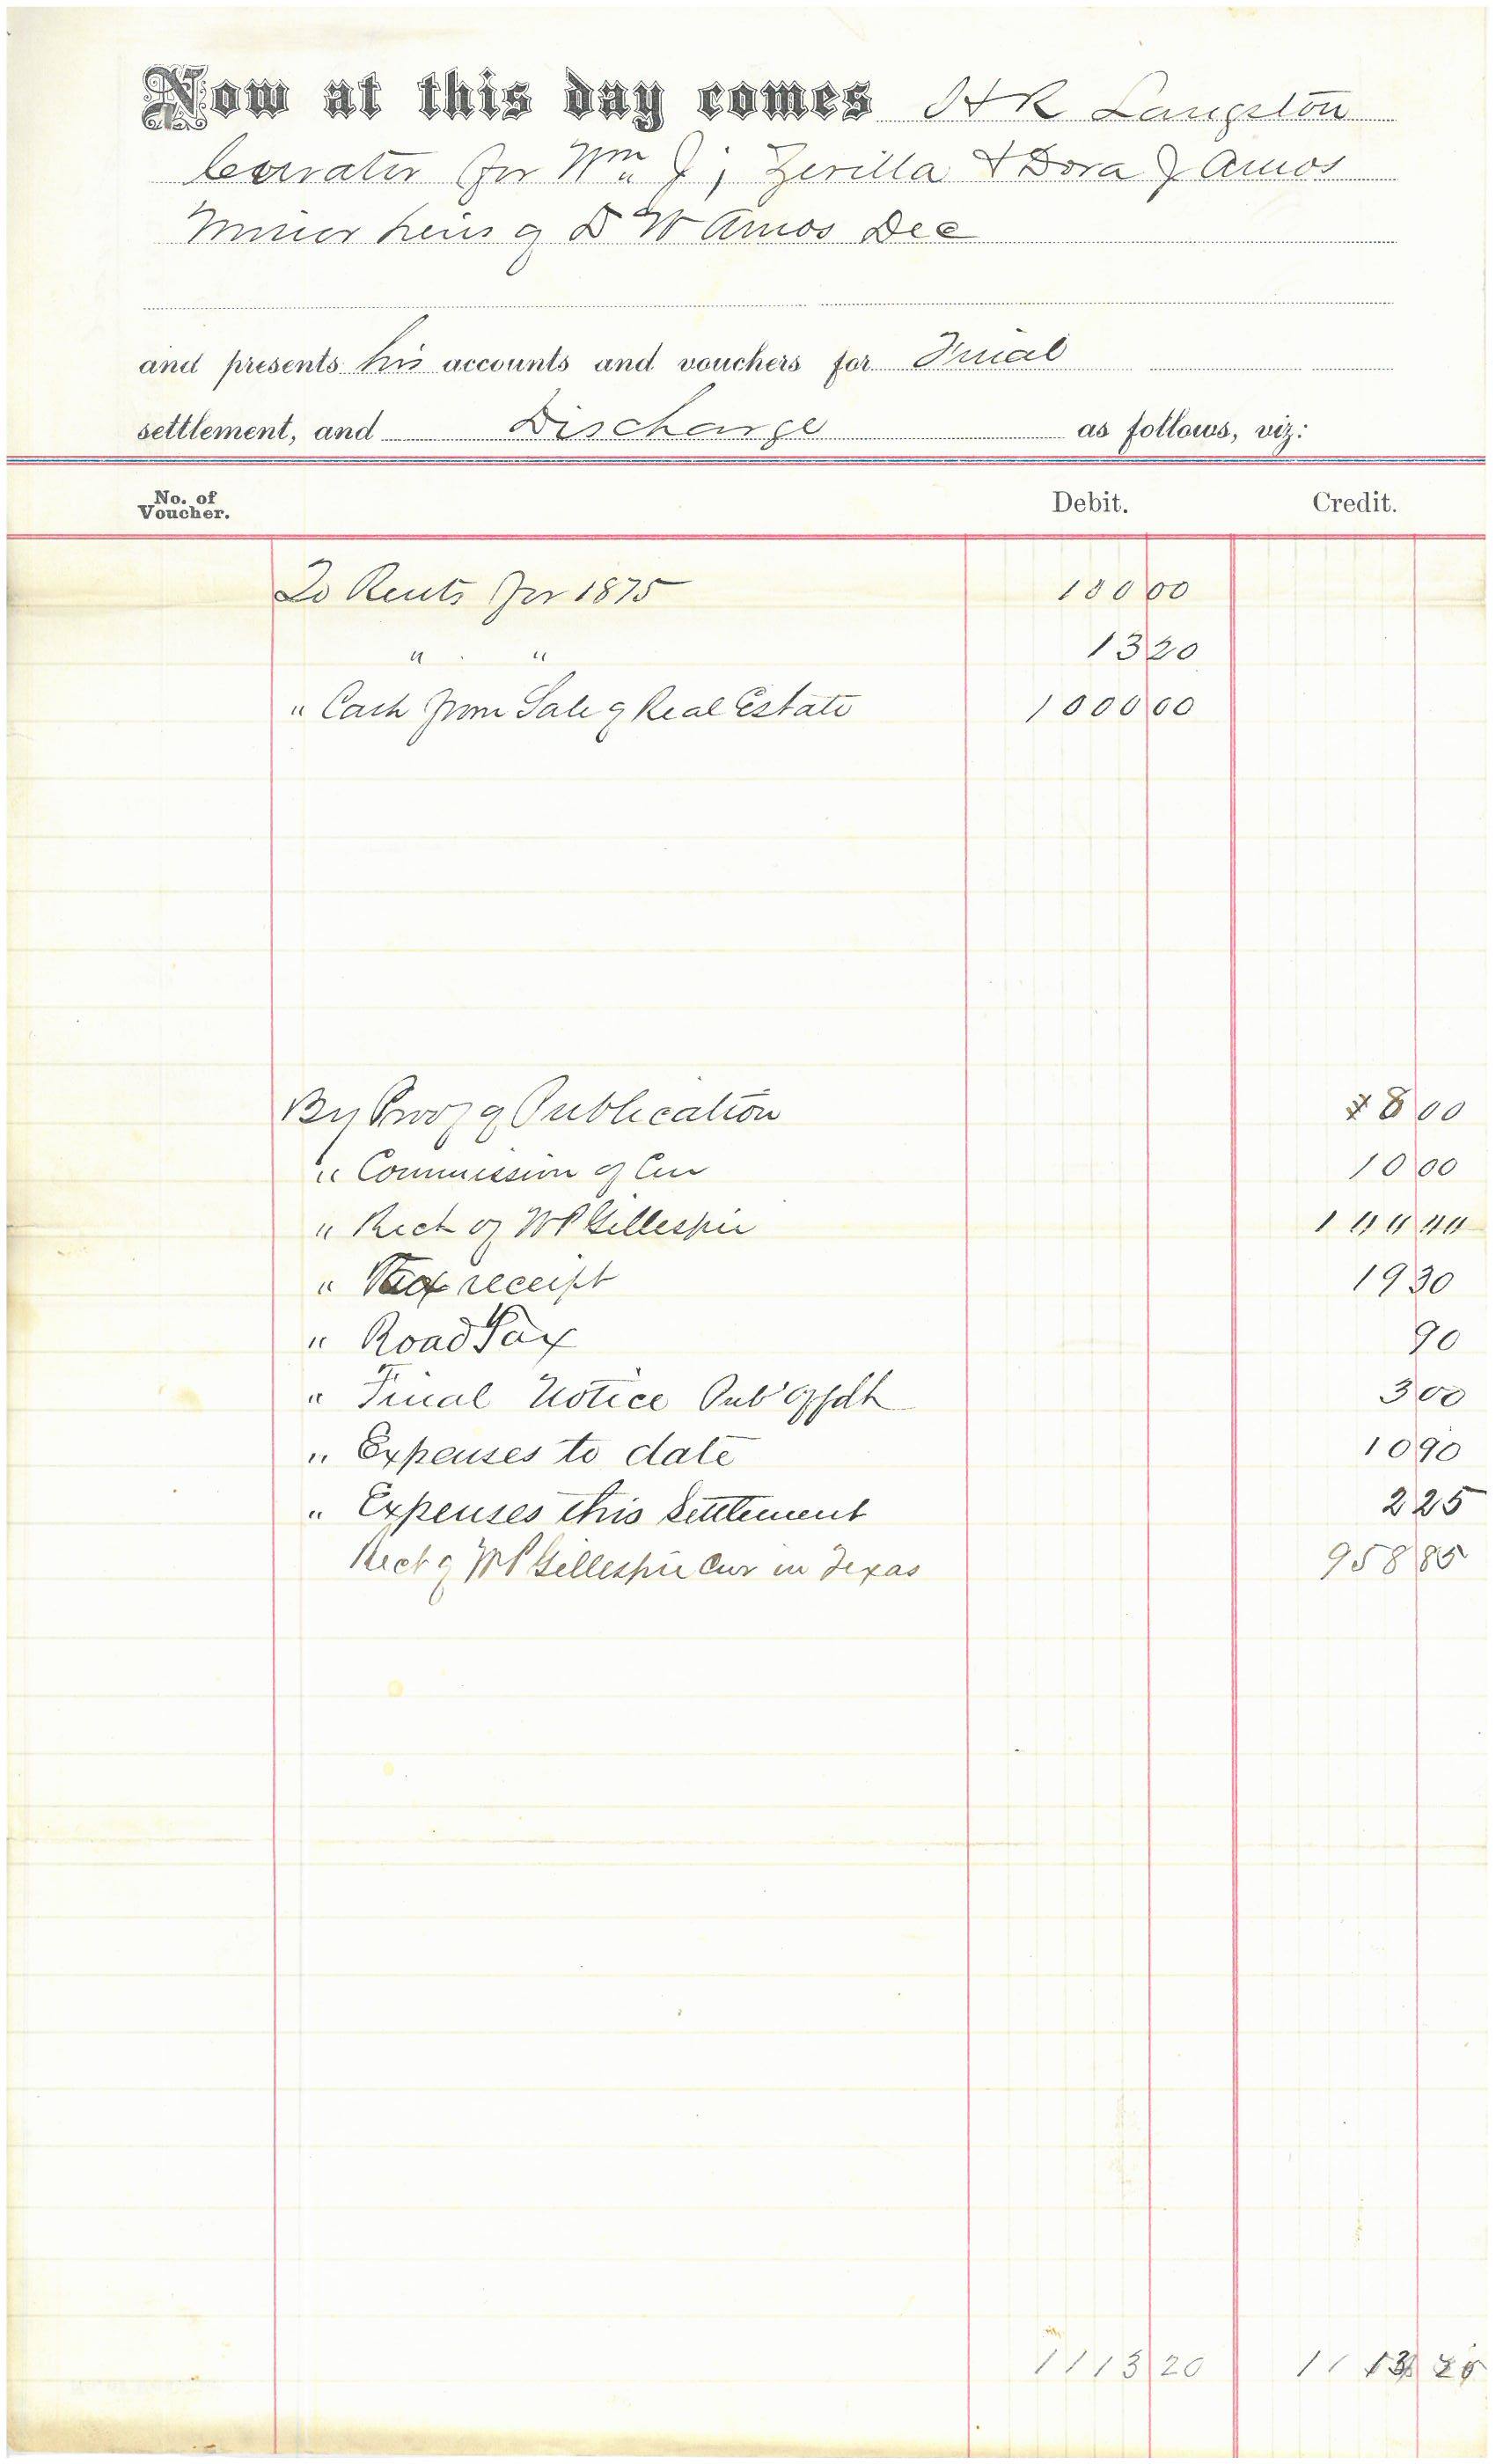 Now at this day comes H R Langston
Currator for Wm J; Zerilla & Dora J Amos
Minor heirs of D W Amos Dec
and presents his accounts and vouchers for Final
settlement, and Discharge as follows, viz:
No. of Voucher. Debit. Credit.
To Rents for 1875 100 00
" " 13 20
" Cash from Sale of Real Estate 1000 00
By Proof of Publication $8 00
" Commission of Cur 10 00
" Rect of W P Gillespie 100 00
" Tax receipt 19 30
" Road Tax 90
" Final Notice Pub 3 00
" Expenses to date 10 90
" Expenses this Settlement 2 25
Rect of W P Gillespie Cur in Texas 958 85
1113 20 1113 20